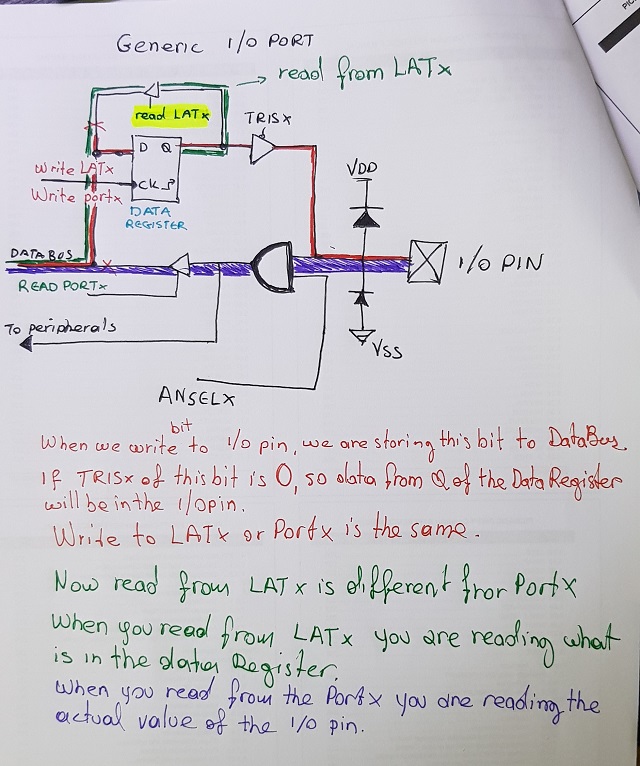 Generic I/O PORT
read from LATx
read LATx
TRISx
D Q
Write LATx
CK
Write portx
VDD
DATA
REGISTER
DATABUS
I/O PIN
READ PORTx
To peripherals
VSS
ANSELX
bit
When we write to I/O pin, we are storing this bit to DataBus
If TRISx of this bit is 0, so data from Q of the Data Register
will be in the I/O pin.
Write to LATx or Portx is the same.
Now read from LATx is different fror PortX
When you read from LATx you are reading what
is in the data Register.
When you read from the Portx you are reading the
actual value of the I/O pin.